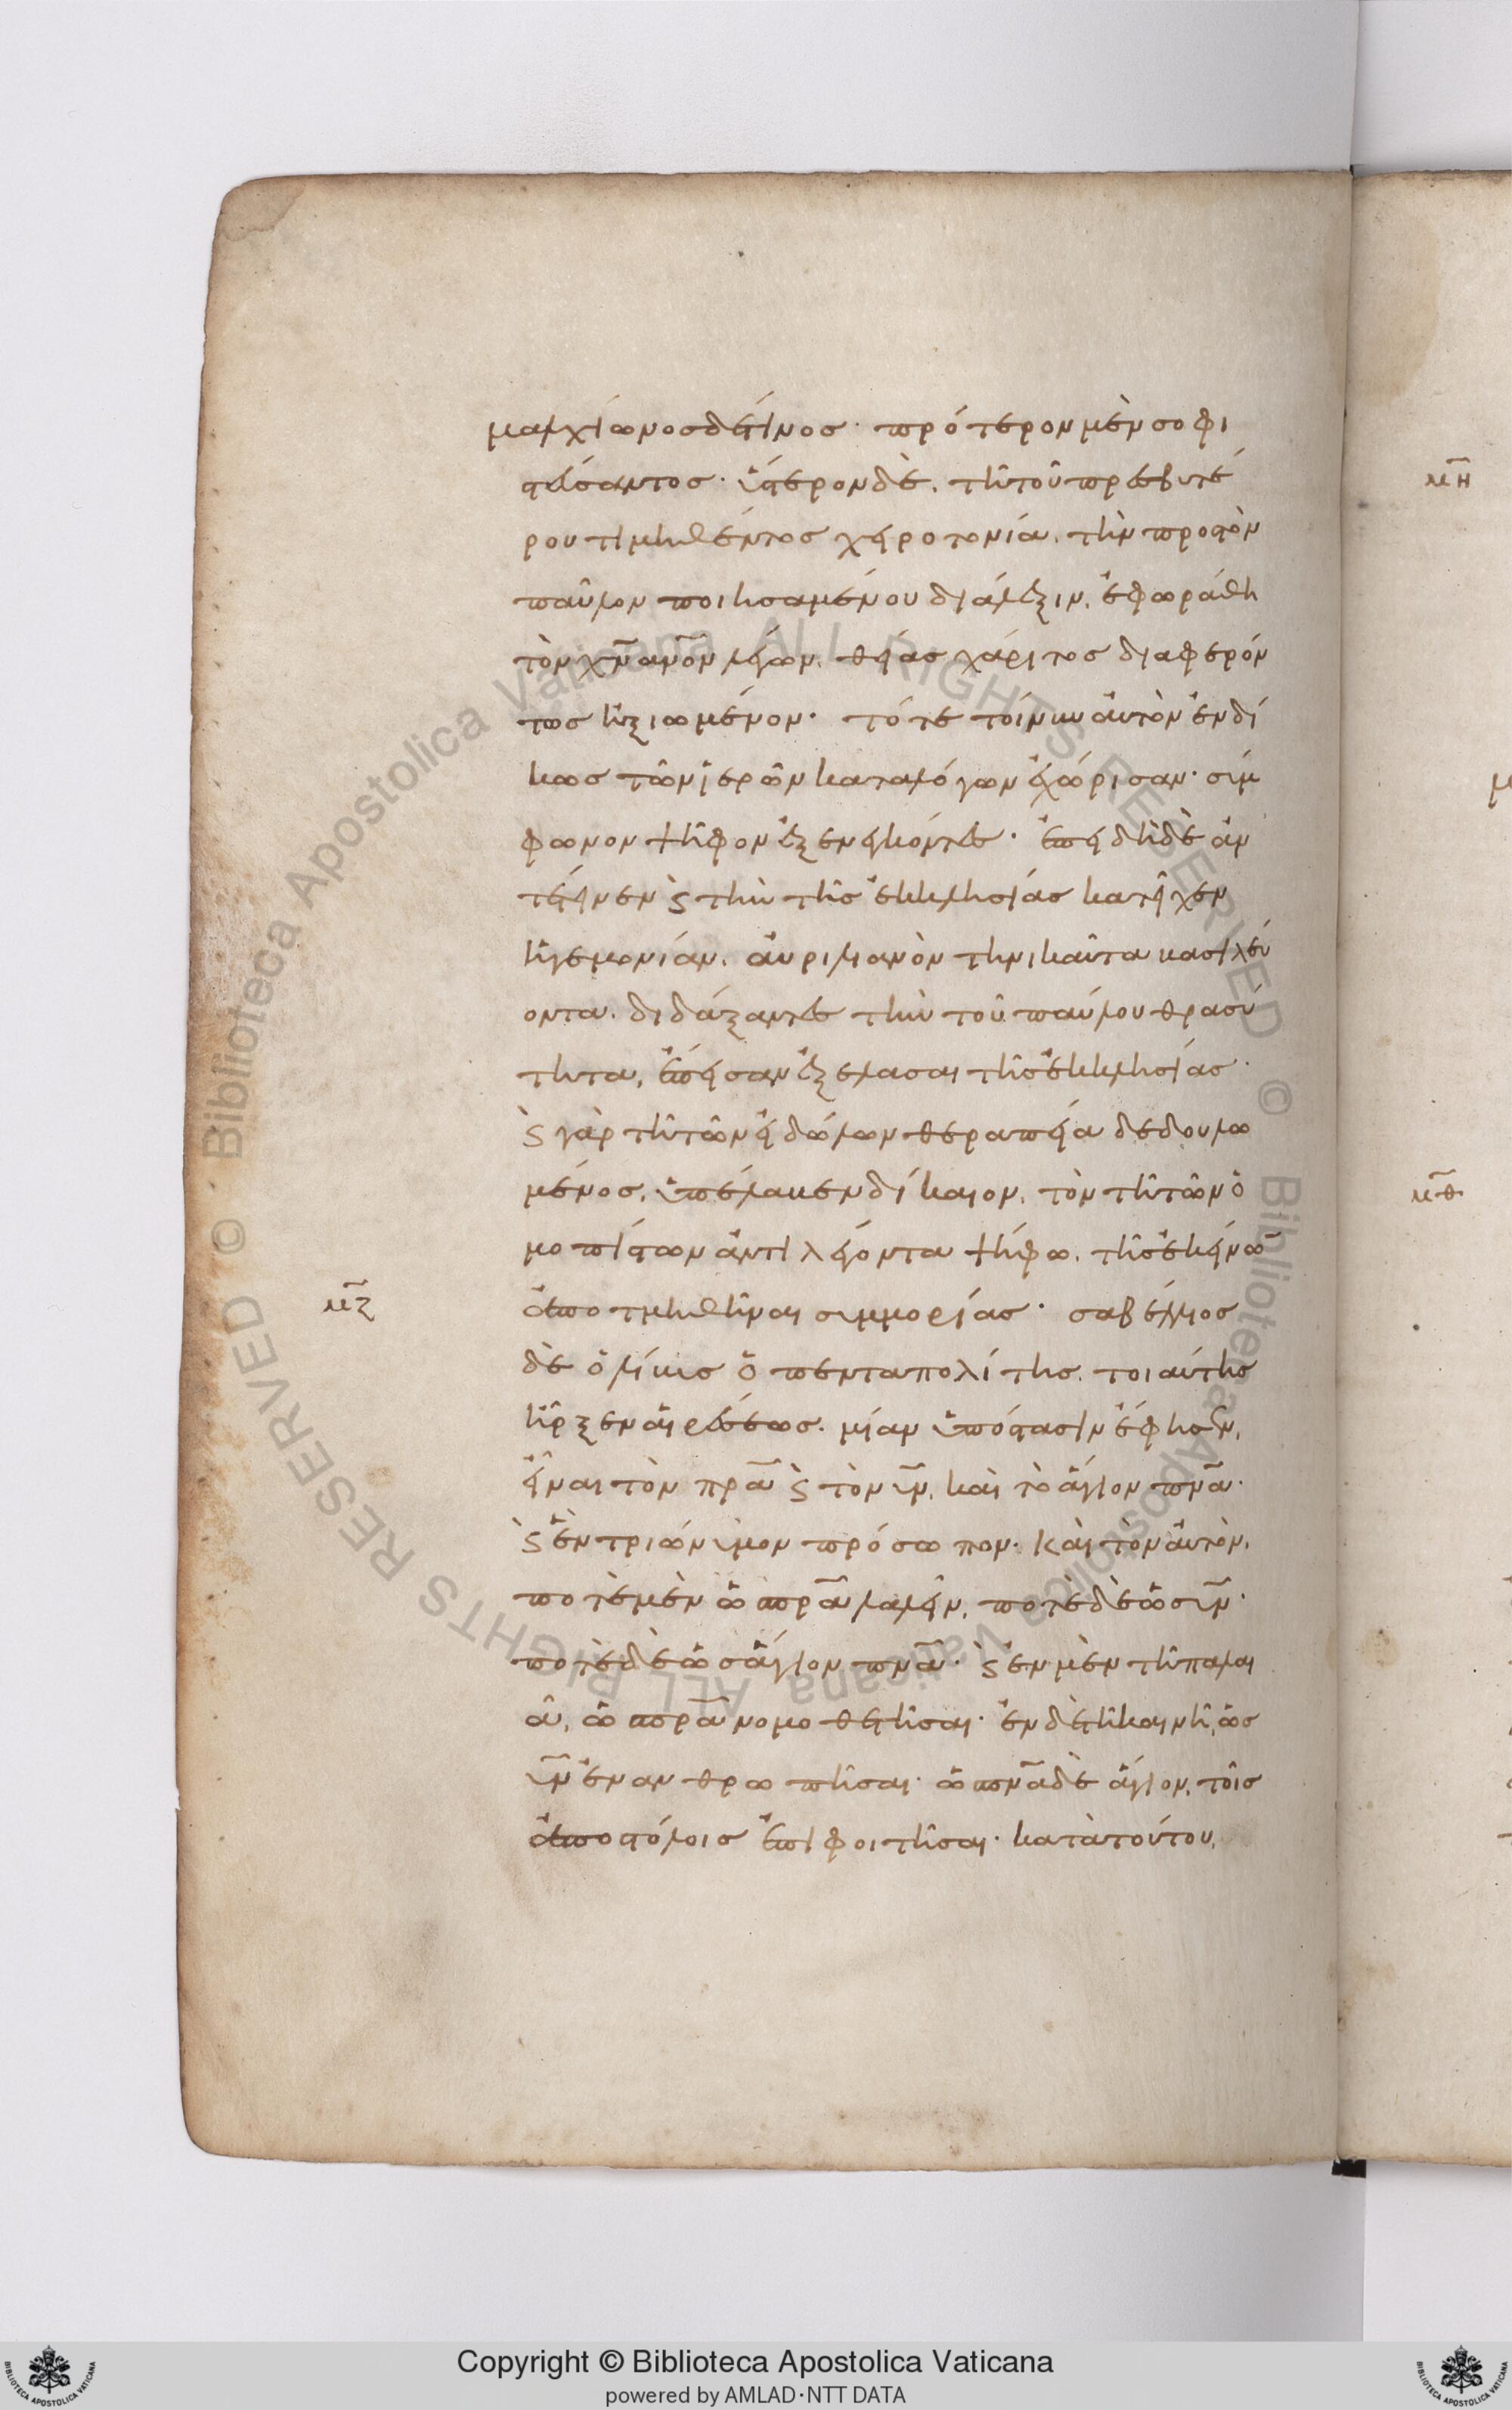 μαλχίωνος δέ τινος· πρότερον μὲν σοφι
στεύσαντος· ὕστερον δὲ, τῆ τοῦ πρεσβυτέ
ρου τιμηθέντος χειροτονία, τὴν προστὸν
παῦλον ποιησαμένου διάλεξιν, ἐφωράθη
τὸν χν̅ ἀνον̅ λέγων, θείας χάριτος διαφερόν
τως ἠξιωμένον· τότε τοίνυν αὐτὸν ἐνδί
κως τῶν ἱερῶν καταλόγων ἐχώρισαν· σύμ
φωνον ψῆφον ἐξενεγκόντες· ἐπειδὴ δὲ ἀν
τέτεινεν ϗ τὴν τῆς ἐκκλησίας κατεῖχεν
ἡγεμονίαν, αὐριλιανὸν τηνικαῦτα βασιλεύ
οντα, διδάξαντες τὴν τοῦ παύλου θρασύ
τητα, ἔπεισαν ἐξελάσαι τῆς ἐκκλησίας·
ϗ γὰρ τῆ τῶν εἰδώλων θεραπεία δεδουλω
μένος, ὑπέλαβεν δίκαιον, τὸν τῆ τῶν ὁ
μοπίστων ἀντιλέγοντα ψήφω, τῆς ἐκείνω̅
ἀποτμηθῆναι συμμορίας· σαβέλλιος
μζ̅
δὲ ὁ λίβυς ὁ πενταπολίτης, τοιαύτης
ἦρξεν αἱρέσεως· μίαν ὑπόστασιν ἔφησεν,
εἶναι τὸν πρα̅ ϗ τὸν υν̅, καὶ τὸ ἅγιον πνα̅·
ϗ ἓν τριώνυμον πρόσωπον· καὶ τὸν αὐτὸν,
ποτὲ μὲν ὡς πρα̅ καλεῖν, ποτὲ δὲ ὡς υν̅·
ποτὲ δὲ ὡς ἅγιον πνα̅· ϗ ἐν μὲν τῆ παλαι
ᾶ, ὡς πρα̅ νομοθετῆσαι· ἐν δὲ τῆ καινῆ, ὡς
υν̅ ἐνανθρωπῆσαι· ὡς πνα̅ δὲ ἅγιον, τοῖς
ἀποστόλοις ἐπιφοιτῆσαι· κατὰ τούτου,
μη̅
μθ̅
Copyright © Biblioteca Apostolica Vaticana
powered by AMLAD·NTT DATA